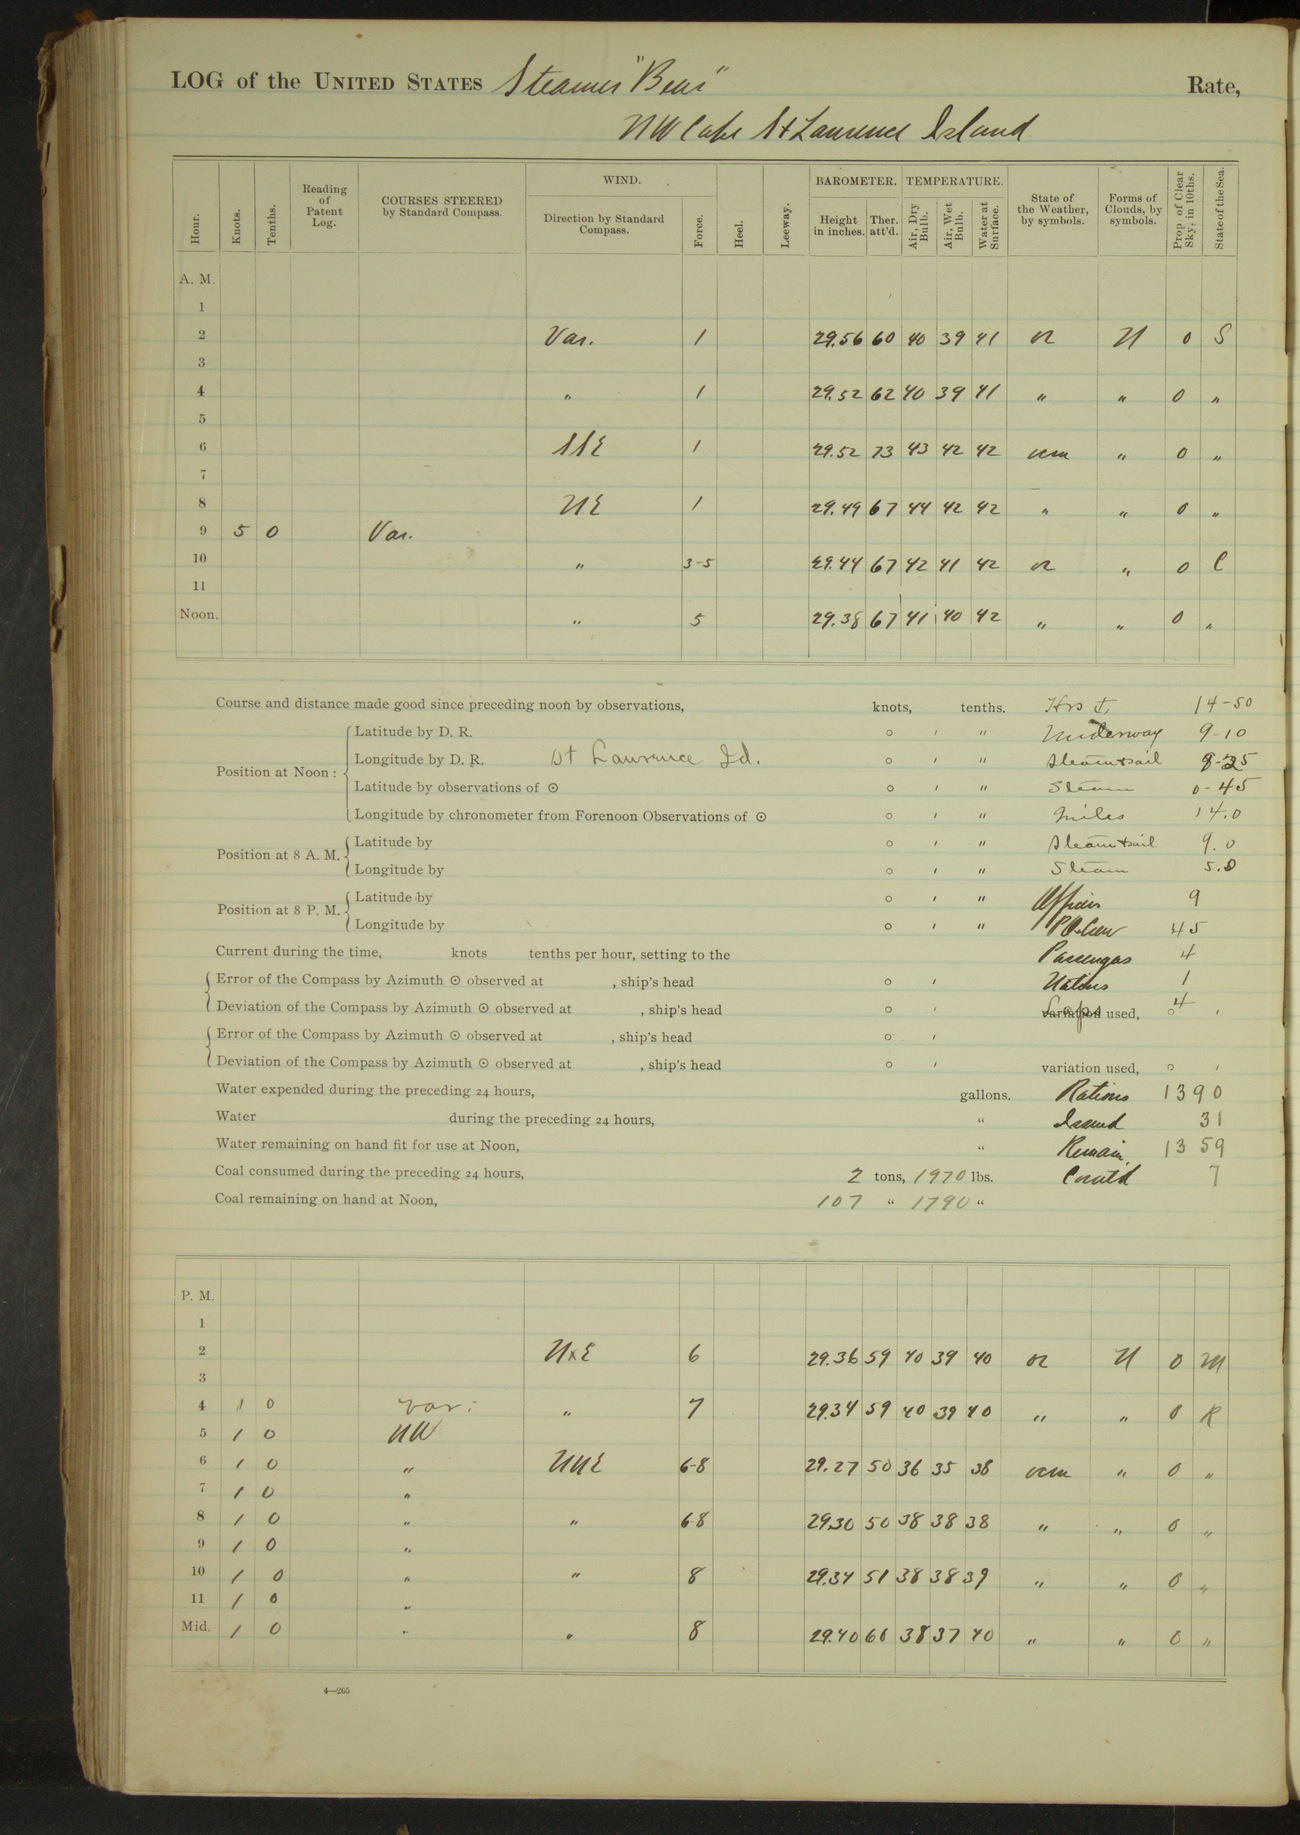 LOG of the UNITED STATES Steamer "Bear" Rate,
NW Cape St Laurence Island
Hour. Knots. Tenths. Reading of Patent Log. COURSES STEERED by Standard Compass. WIND. Direction by Standard Compass. Force. Heel. Leeway. BAROMETER. Height in inches. Ther. att'd. TEMPERATURE. Air, Dry Bulb. Air, Wet Bulb. Water at Surface. State of the Weather, by symbols. Forms of Clouds, by symbols. Prop. of Clear Sky, in 10ths. State of the Sea.
A. M.
1
2 Var. 1 29.56 60 40 39 41 or N 0 S
3
4 " 1 29.52 62 40 39 41 " " 0 "
5
6 SSE 1 29.52 73 43 42 42 ocm " 0 "
7
8 NE 1 29.49 67 44 42 42 " " 0 "
9 5 0 Var.
10 " 3-5 29.44 67 42 41 42 or " 0 C
11
Noon. " 5 29.38 67 41 40 42 " " 0 "
Course and distance made good since preceding noon by observations, knots, tenths. Hrs 14-50
Position at Noon : Latitude by D. R. ° ′ ″ Underway 9-10
Longitude by D. R. St Laurence Id. ° ′ ″ Steam & sail 8-25
Latitude by observations of ☉ ° ′ ″ Steam 0-45
Longitude by chronometer from Forenoon Observations of ☉ ° ′ ″ Miles 14.0
Position at 8 A. M. Latitude by ° ′ ″ Steam & sail 9.0
Longitude by ° ′ ″ Steam 5.0
Position at 8 P. M. Latitude by ° ′ ″ Officers 9
Longitude by ° ′ ″ PO & Crew 45
Current during the time, knots tenths per hour, setting to the Passengers 4
Error of the Compass by Azimuth ☉ observed at , ship's head ° ′ Natives 1
Deviation of the Compass by Azimuth ☉ observed at , ship's head ° ′ variation used, Laps 4 ° ′
Error of the Compass by Azimuth ☉ observed at , ship's head ° ′
Deviation of the Compass by Azimuth ☉ observed at , ship's head ° ′ variation used, ° ′
Water expended during the preceding 24 hours, gallons. Rations 1390
Water during the preceding 24 hours, " Issued 31
Water remaining on hand fit for use at Noon, " Remain 1359
Coal consumed during the preceding 24 hours, 2 tons, 1970 lbs. Com'td 7
Coal remaining on hand at Noon, 107 " 1790 "
P. M.
1
2 NxE 6 29.36 59 40 39 40 or N 0 M
3
4 1 0 Var. " 7 29.34 59 40 39 40 " " 0 R
5 1 0 NW
6 1 0 " NNE 6-8 29.27 50 36 35 38 ocm " 0 "
7 1 0 "
8 1 0 " " 6-8 29.30 50 38 38 38 " " 0 "
9 1 0 "
10 1 0 " " 8 29.34 51 38 38 39 " " 0 "
11 1 0 "
Mid. 1 0 " " 8 29.40 38 37 40 " " 0 "
4—265